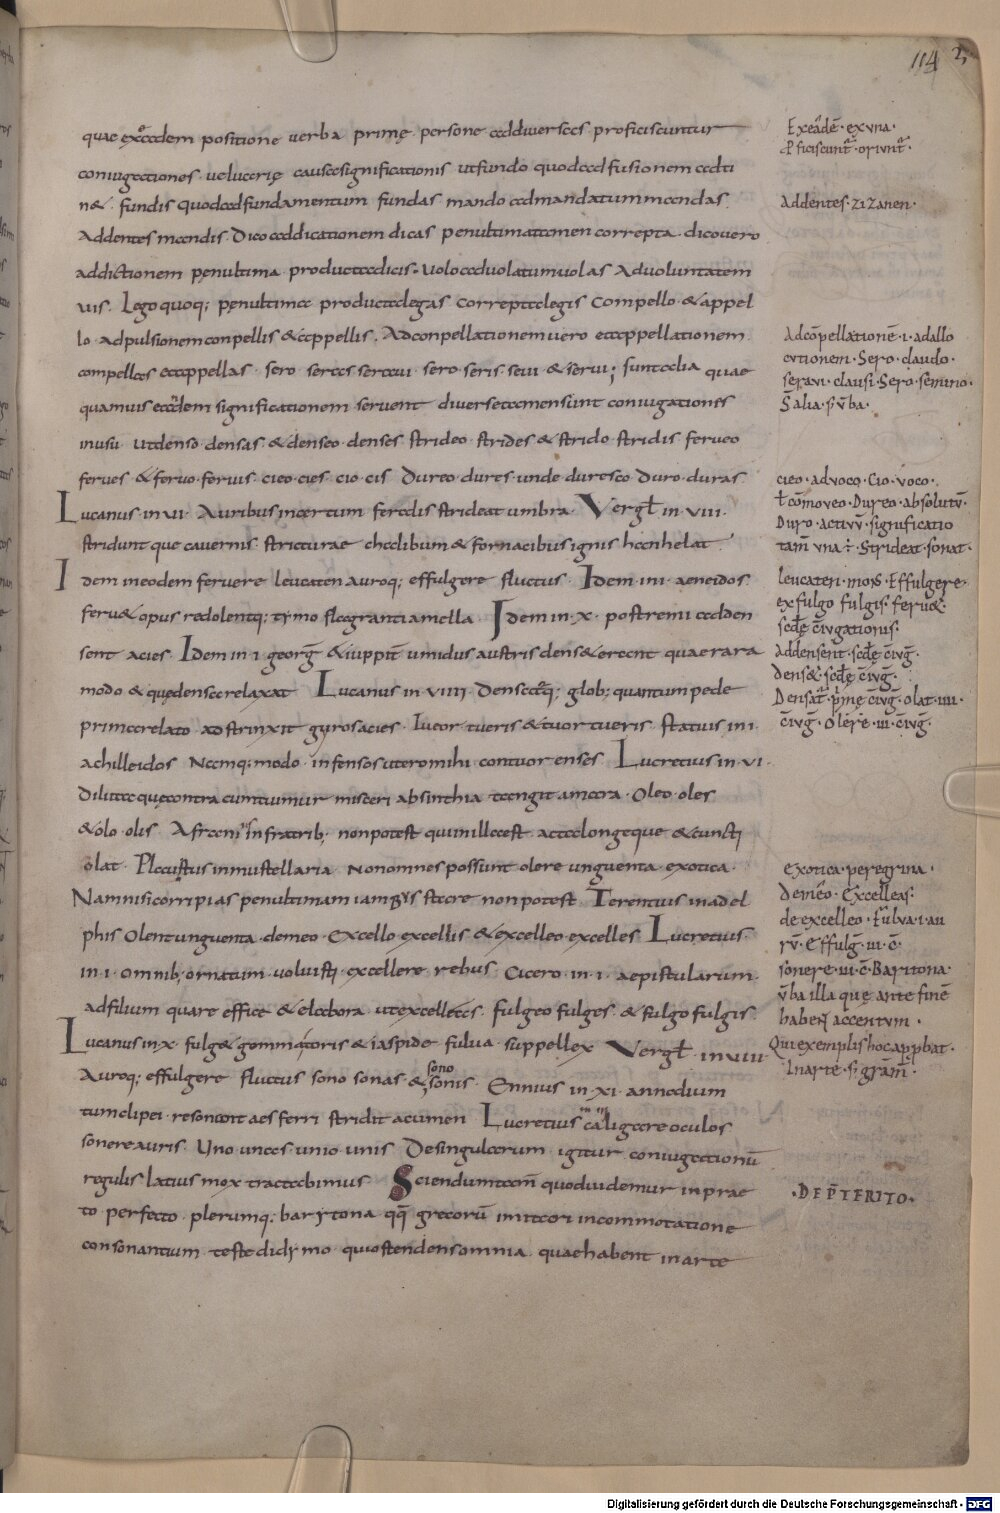 114
quae ex eadem positione verba prime persone ad diversas proficiscuntur
coniugationes · velvarie causa significationis ut fundo quod ad fusionem adti
n& · fundis quod ad fundamentum fundas mando ad mandatum mandas
Addentes mandis · Dico ad dicationem dicas penultima tamen correpta · dico vero
addictionem penultima producta dicis · volo ad volatum volas Ad voluntatem
vis · Lego quoq; penultima producta legas correpta legis Compello & appel
lo · ad pulsionem conpellis & appellis · Ad conpellationem vero et appellationem
compellas et appellas · sero seras seravi · sero seris sevi & serui; sunt alia quae
quamvis eandem significationem servent diversae tamen sunt coniugationes
inusu · ut denso densas & denseo denses strideo strides & strido stridis ferveo
ferves & fervo · fervis · cieo · cies · cio · cis Dureo · dures · unde · duresco Duro · duras
Lucanus in · vii · Auribus incertum feralis strideat umbra · Vergł in · viii ·
stridunt que cavernis stricturae chalibum & fornacibus ignis hanhelat
Idem in eodem fervere leucaten Auroq; effulgere fluctus · Idem · iiii · aeneidos
ferv& opus redolentq; tymo flagrantia mella Idem in · x · postremi adden
sent acies · Idem in · i georḡ & iuppit̄ umidus austris dens& erant quae rara
modo & quę densa relaxat Lucanus in · viiii · Densatq; glob; quantum pede
prima relato adstrinxit gyros acies · Tueor tueris & tuor tueris · statius in · i
achilleidos Namq; modo infensos utero mihi contuor enses Lucretius in · vi ·
dilutaque contra cum tuimur misceri absinthia tangit amara · Oleo · oles
& olo · olis Afranius in fratrib; non potest qui millae est actae longeque & cuncti
olat · Plautus in mustellaria nonomnes possunt olere unguenta exotica ·
Nam nisi corripias penultimam iambus stare non potest Terentius in adel
phis Olent unguenta · demeo · Excello · excellis & excelleo · excelles Lucretius ·
in · i · omnib; ornatum · voluisti · excellere rebus Cicero · in · i · aepistularum
ad filium quare effice & elabora ut excelleas · fulgeo fulges & fulgo fulgis
Lucanus in · x · fulg& gemma toris & iaspide fulva suppellex Vergł in viii
Auroq; effulgere fluctus sono sonas & sono sonis Ennius in · xi · annalium
tum clipei · resonunt aes ferri stridit acumen Lucretius caligare oculos
sonere auris · Uno unas · unio · unis De singularum igitur coniugationū
regulis latius mox tractabimus Sciendum tam̄ quod videmur in prae
to perfecto plerumq; barytona · qq̄ grecorū imitari in commotatione
consonantium teste didymo qui ostendens omnia quae habent in arte
Exeadē · ex una ·
Pficiscunt̄ · oriunt̄ ·
Addentes · zizanen ·
Adcōpellationē · i · ad allo
cutionem · Sero · claudo ·
seravi · clausi · Sero · semino ·
S̄ alia · s̄ v̄ba ·
cieo · advoco · Cio · voco ·
ł cōmoveo · Dureo · absolutū ·
Duro · activū · significatio
tam̄ una ÷ · Strideat · sonat ·
leucaten · mons · Effulgere ·
ex fulgo fulgis · ferv& ·
Addensent · scdę c̄iugḡ ·
Dens& · scdę c̄iugḡ ·
c̄iugḡ · olere · iii · c̄iugḡ ·
Exotica · peregrina ·
demeo · Excelleas ·
de excelleo · fulva · i · au
rv̄ · Effulḡ · iii · c̄ ·
sonere · iii · c̄ · Baritona ·
v̄ba illa quę ante finē
habent accentum ·
Qui exemplis hoc appbat ·
Inarte · s̄ gram̄ ·
· DE P̄TERITO ·
Digitalisierung gefördert durch die Deutsche Forschungsgemeinschaft - DFG